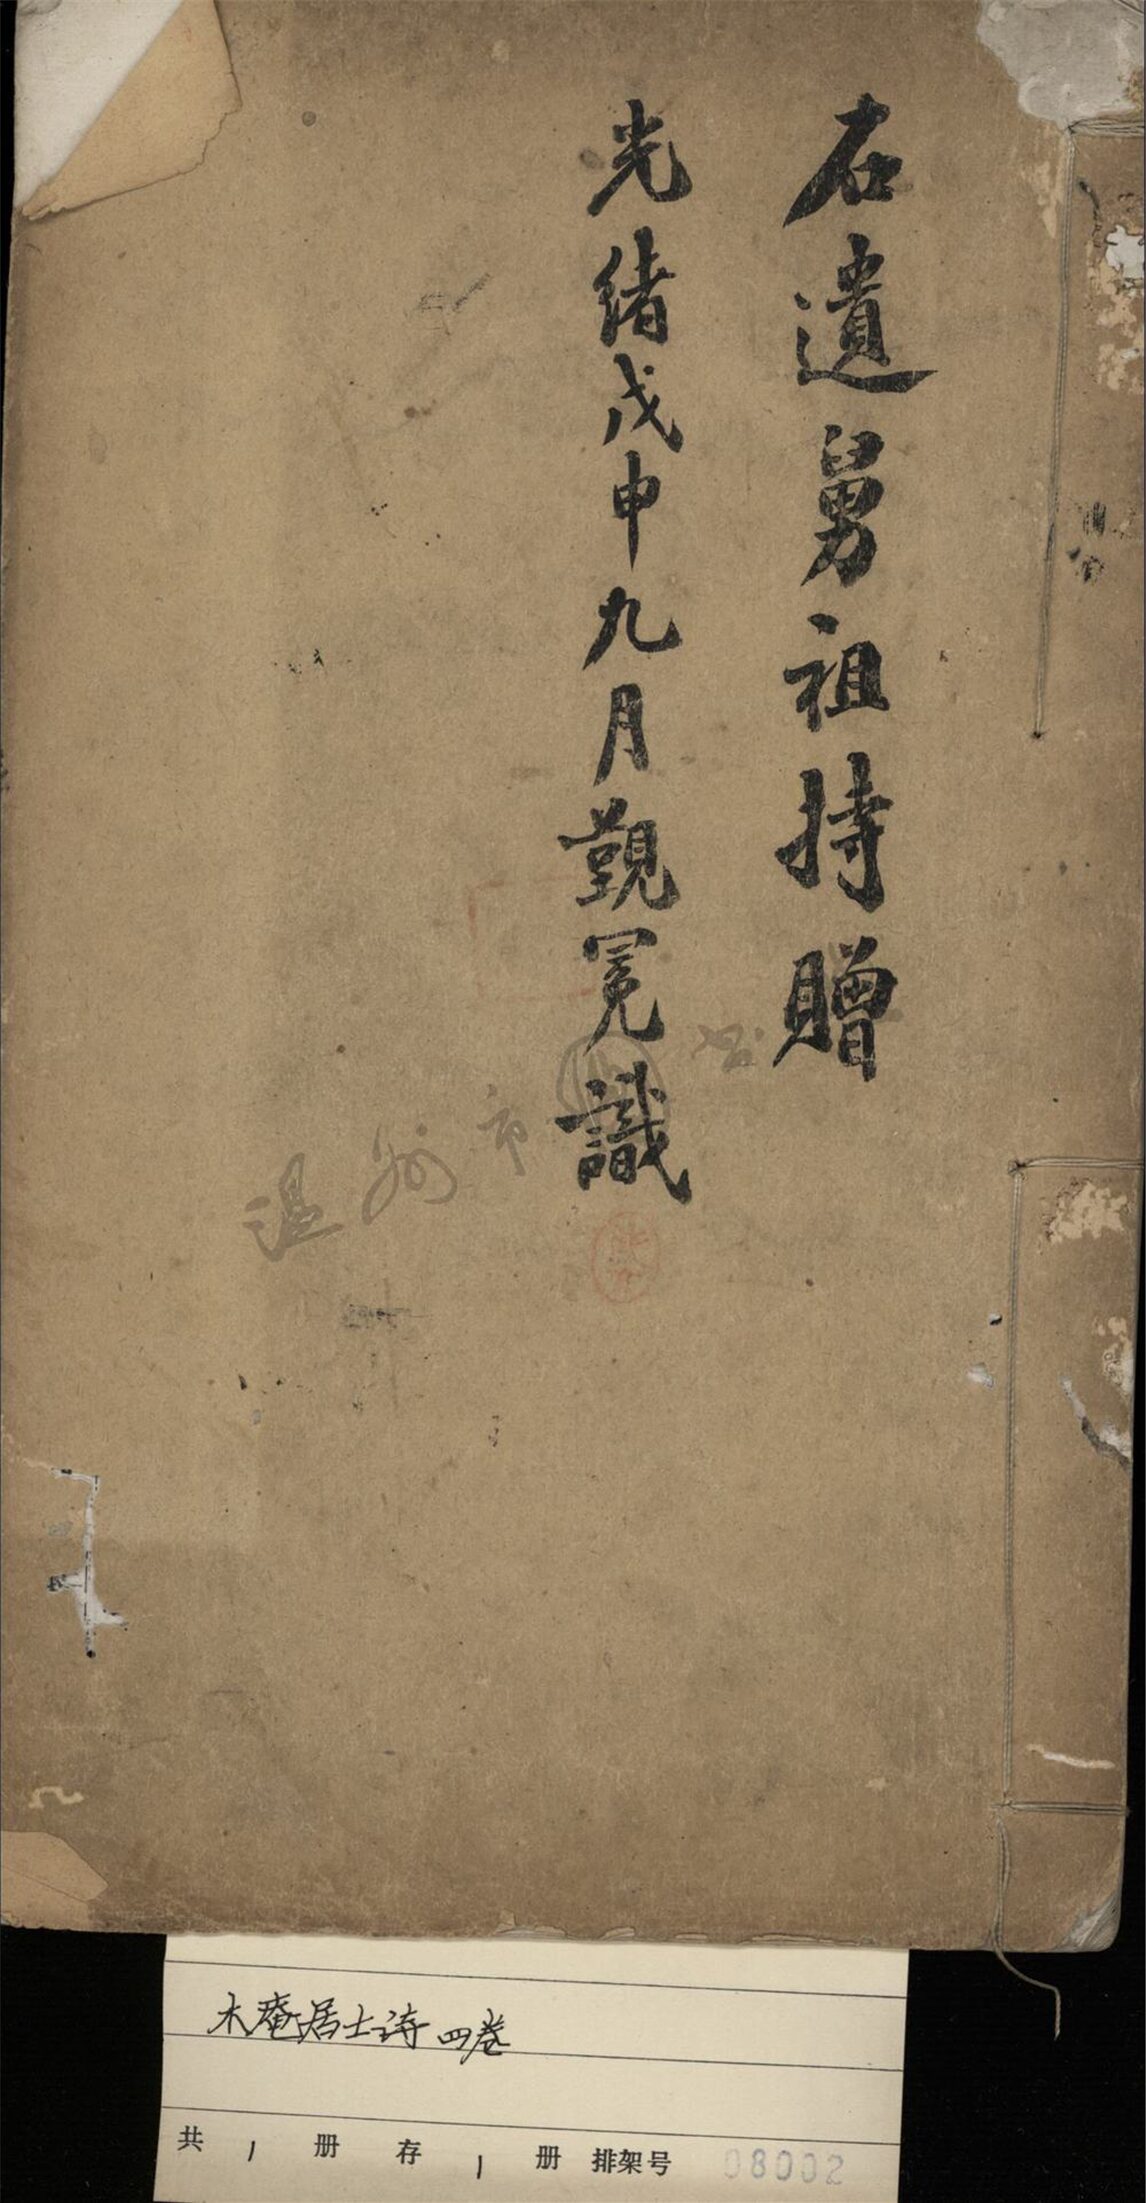 石遺舅祖持贈
光緒戊申九月覲冕識
温州市
木庵居士诗 四卷
共 1 册 存 1 册 排架号 08002